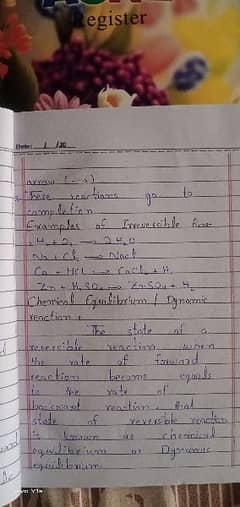 Register
Date: 1 / 20
arrow (→)
These reactions go to
completion
Examples of Irreversible
H₂ + O₂ → 2H₂O
Na + Cl₂ → NaCl
Ca + HCl → CaCl₂ + H₂
Zn + H₂SO₄ → ZnSO₄ + H₂
Chemical Equilibrium / Dynamic
reaction :
The state of a
reversible reaction when
the rate of forward
reaction becoms equals
to the rate of
reaction that
state of reversible reaction
is known as chemical
equilibrium or Dynamic
equilibrium